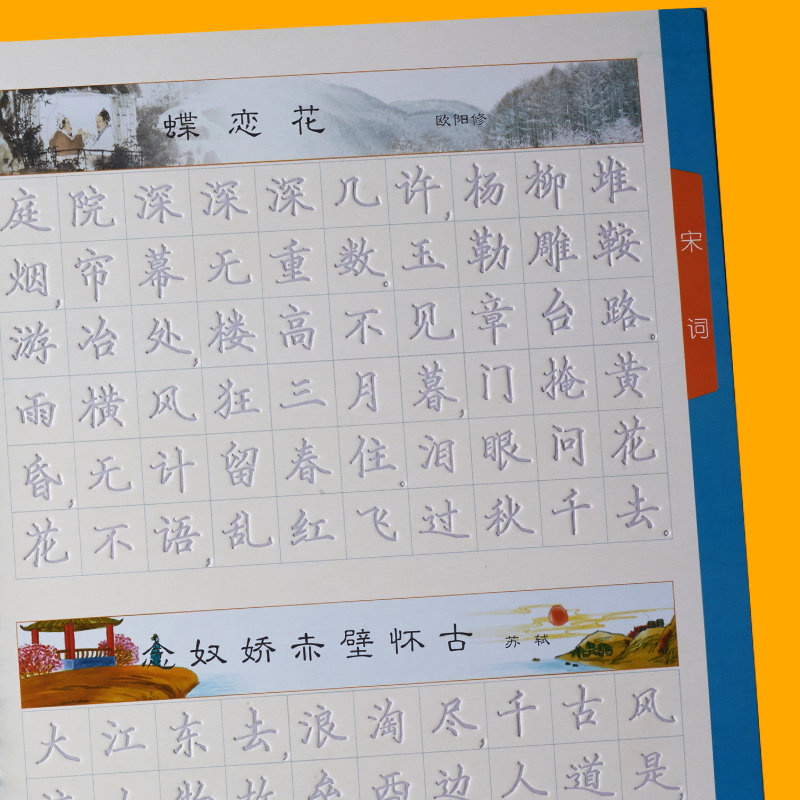 蝶恋花 欧阳修
庭院深深深几许,杨柳堆
烟,帘幕无重数。玉勒雕鞍
游冶处,楼高不见章台路。
雨横风狂三月暮,门掩黄
昏,无计留春住。泪眼问花
花不语,乱红飞过秋千去。
念奴娇赤壁怀古 苏轼
大江东去,浪淘尽,千古风
西边人道是,
宋词